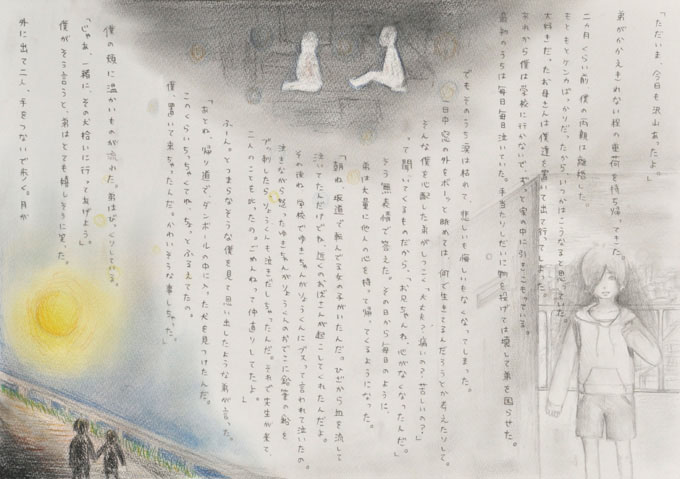 「ただいま、今日も沢山あったよ。」
弟がかかえきれない程の重荷を持ち帰ってきた。
二か月くらい前、僕の両親は離婚した。
もともとケンカばっかりだったから、いつかはこうなると思っていた。
大好きだったお母さんは僕達を置いて出て行ってしまった。
あれから僕は学校に行かないで、ずっと家の中に引きこもっている。
最初のうちは毎日毎日泣いていた。手当たりしだいに物を投げては壊して弟を困らせた。
でもそのうち涙は枯れて、悲しいも悔しいもなくなってしまった。
一日中、窓の外をボーッと眺めては、何で生きてるんだろうとか考えたりして。
そんな僕を心配した弟がしつこく「大丈夫？痛いの？苦しいの？」
って聞いてくるものだから、「お兄ちゃんね、心がなくなったんだ。」
そう無表情で答えた。その日から毎日のように、
弟は大量に他人の心を持って帰ってくるようになった。
「朝ね、坂道で転んでる女の子がいたんだ。ひざから血を流して
泣いてたんだけどね、近くのおばさんが起こしてくれたんだよ。
その後ね、学校でゆきちゃんがりょうくんにブスって言われて泣いたの。
泣きながら怒ったゆきちゃんがりょうくんのおでこに鉛筆の船を
ブッ刺したらりょうくんも泣きだしちゃったんだ。それで先生が来て、
二人のことも叱ったの。ごめんねって仲直りしてたよ。」
ふーん。とつまらなそうな僕を見て思い出したような弟が言った。
「あとね、帰り道で、ダンボールの中に入った犬を見つけたんだ。
このくらいちっちゃくてね、ちょっとふるえてたの。
僕、置いて来ちゃったんだ。かわいそうな事しちゃった。」
僕の頬に温かいものが流れた。弟はびっくりしている。
「じゃあ、一緒に、その犬拾いに行ってあげよう。」
僕がそう言うと、弟はとても嬉しそうに笑った。
外に出て二人、手をつないで歩く。月が